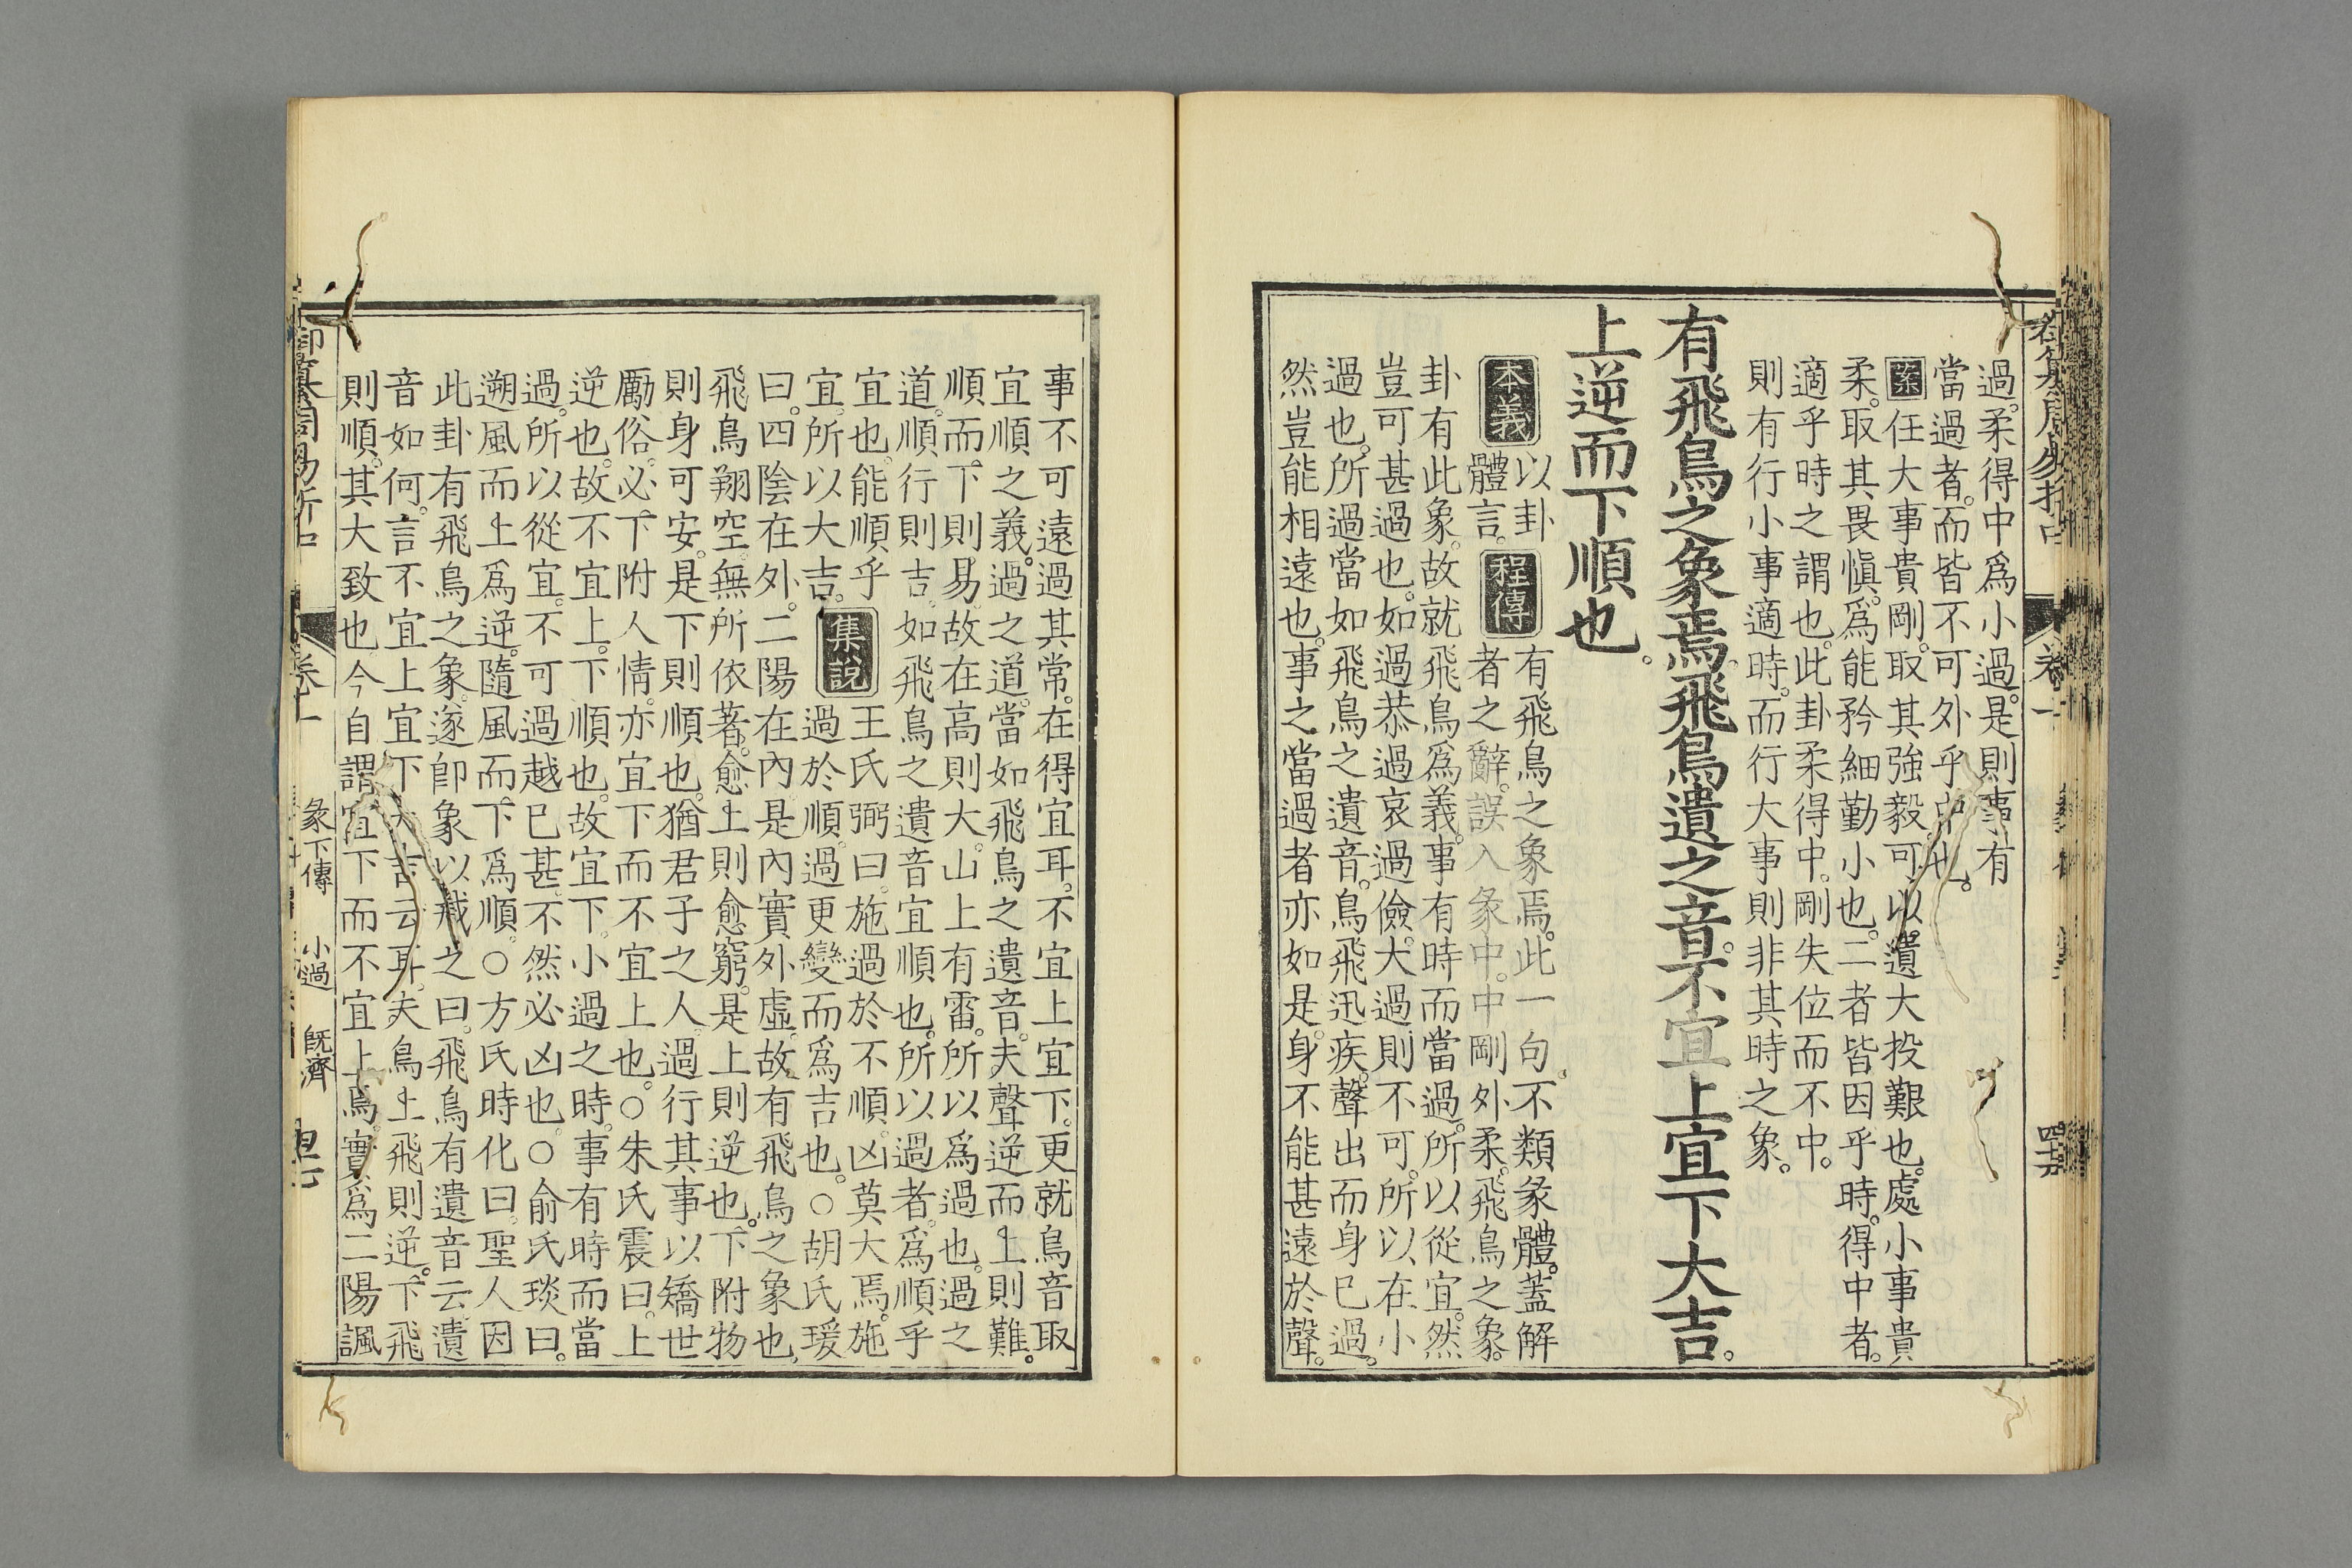 過。柔得中爲小過。是則事有
當過者。而皆不可外乎中也。
案 任大事貴剛。取其強毅。可以遺大投艱也。處小事貴
柔。取其畏愼。爲能矜細勤小也。二者皆因乎時。得中者。
適乎時之謂也。此卦柔得中。剛失位而不中。
則有行小事適時。而行大事則非其時之象。
有飛鳥之象焉。飛鳥遺之音。不宜上宜下大吉。
上逆而下順也。
本義 以卦體言。 程傳 有飛鳥之象焉。此一句。不類彖體。蓋解
者之辭。誤入彖中。中剛外柔。飛鳥之象。
卦有此象。故就飛鳥爲義。事有時而當過。所以從宜。然
豈可甚過也。如過恭過哀過儉。大過則不可。所以在小
過也。所過當如飛鳥之遺音。鳥飛迅疾。聲出而身已過。
然豈能相遠也。事之當過者亦如是。身不能甚遠於聲。
卷十一
四十五
事不可遠過其常。在得宜耳。不宜上宜下。更就鳥音取
宜順之義。過之道。當如飛鳥之遺音。夫聲逆而上則難。
順而下則易。故在高則大。山上有雷。所以爲過也。過之
道。順行則吉。如飛鳥之遺音宜順也。所以過者。爲順乎
宜也。能順乎宜。所以大吉。 集說 王氏弼曰。施過於不順。凶莫大焉。施
過於順。過更變而爲吉也。○胡氏瑗
曰。四陰在外。二陽在內。是內實外虛。故有飛鳥之象也。
飛鳥翔空。無所依著。愈上則愈窮。是上則逆也。下附物
則身可安。是下則順也。猶君子之人。過行其事以矯世
勵俗。必下附人情。亦宜下而不宜上也。○朱氏震曰。上
逆也。故不宜上。下順也。故宜下。小過之時。事有時而當
過。所以從宜。不可過越已甚。不然必凶也。○俞氏琰曰。
遡風而上爲逆。隨風而下爲順。○方氏時化曰。聖人因
此卦有飛鳥之象。遂卽象以戒之曰。飛鳥有遺音云遺
音如何。言不宜上宜下大吉云耳。夫鳥上飛則逆。下飛
則順。其大致也今自謂宜下而不宜上焉。實爲二陽諷
御纂周易折中
卷十一
彖下傳 小過 旣濟